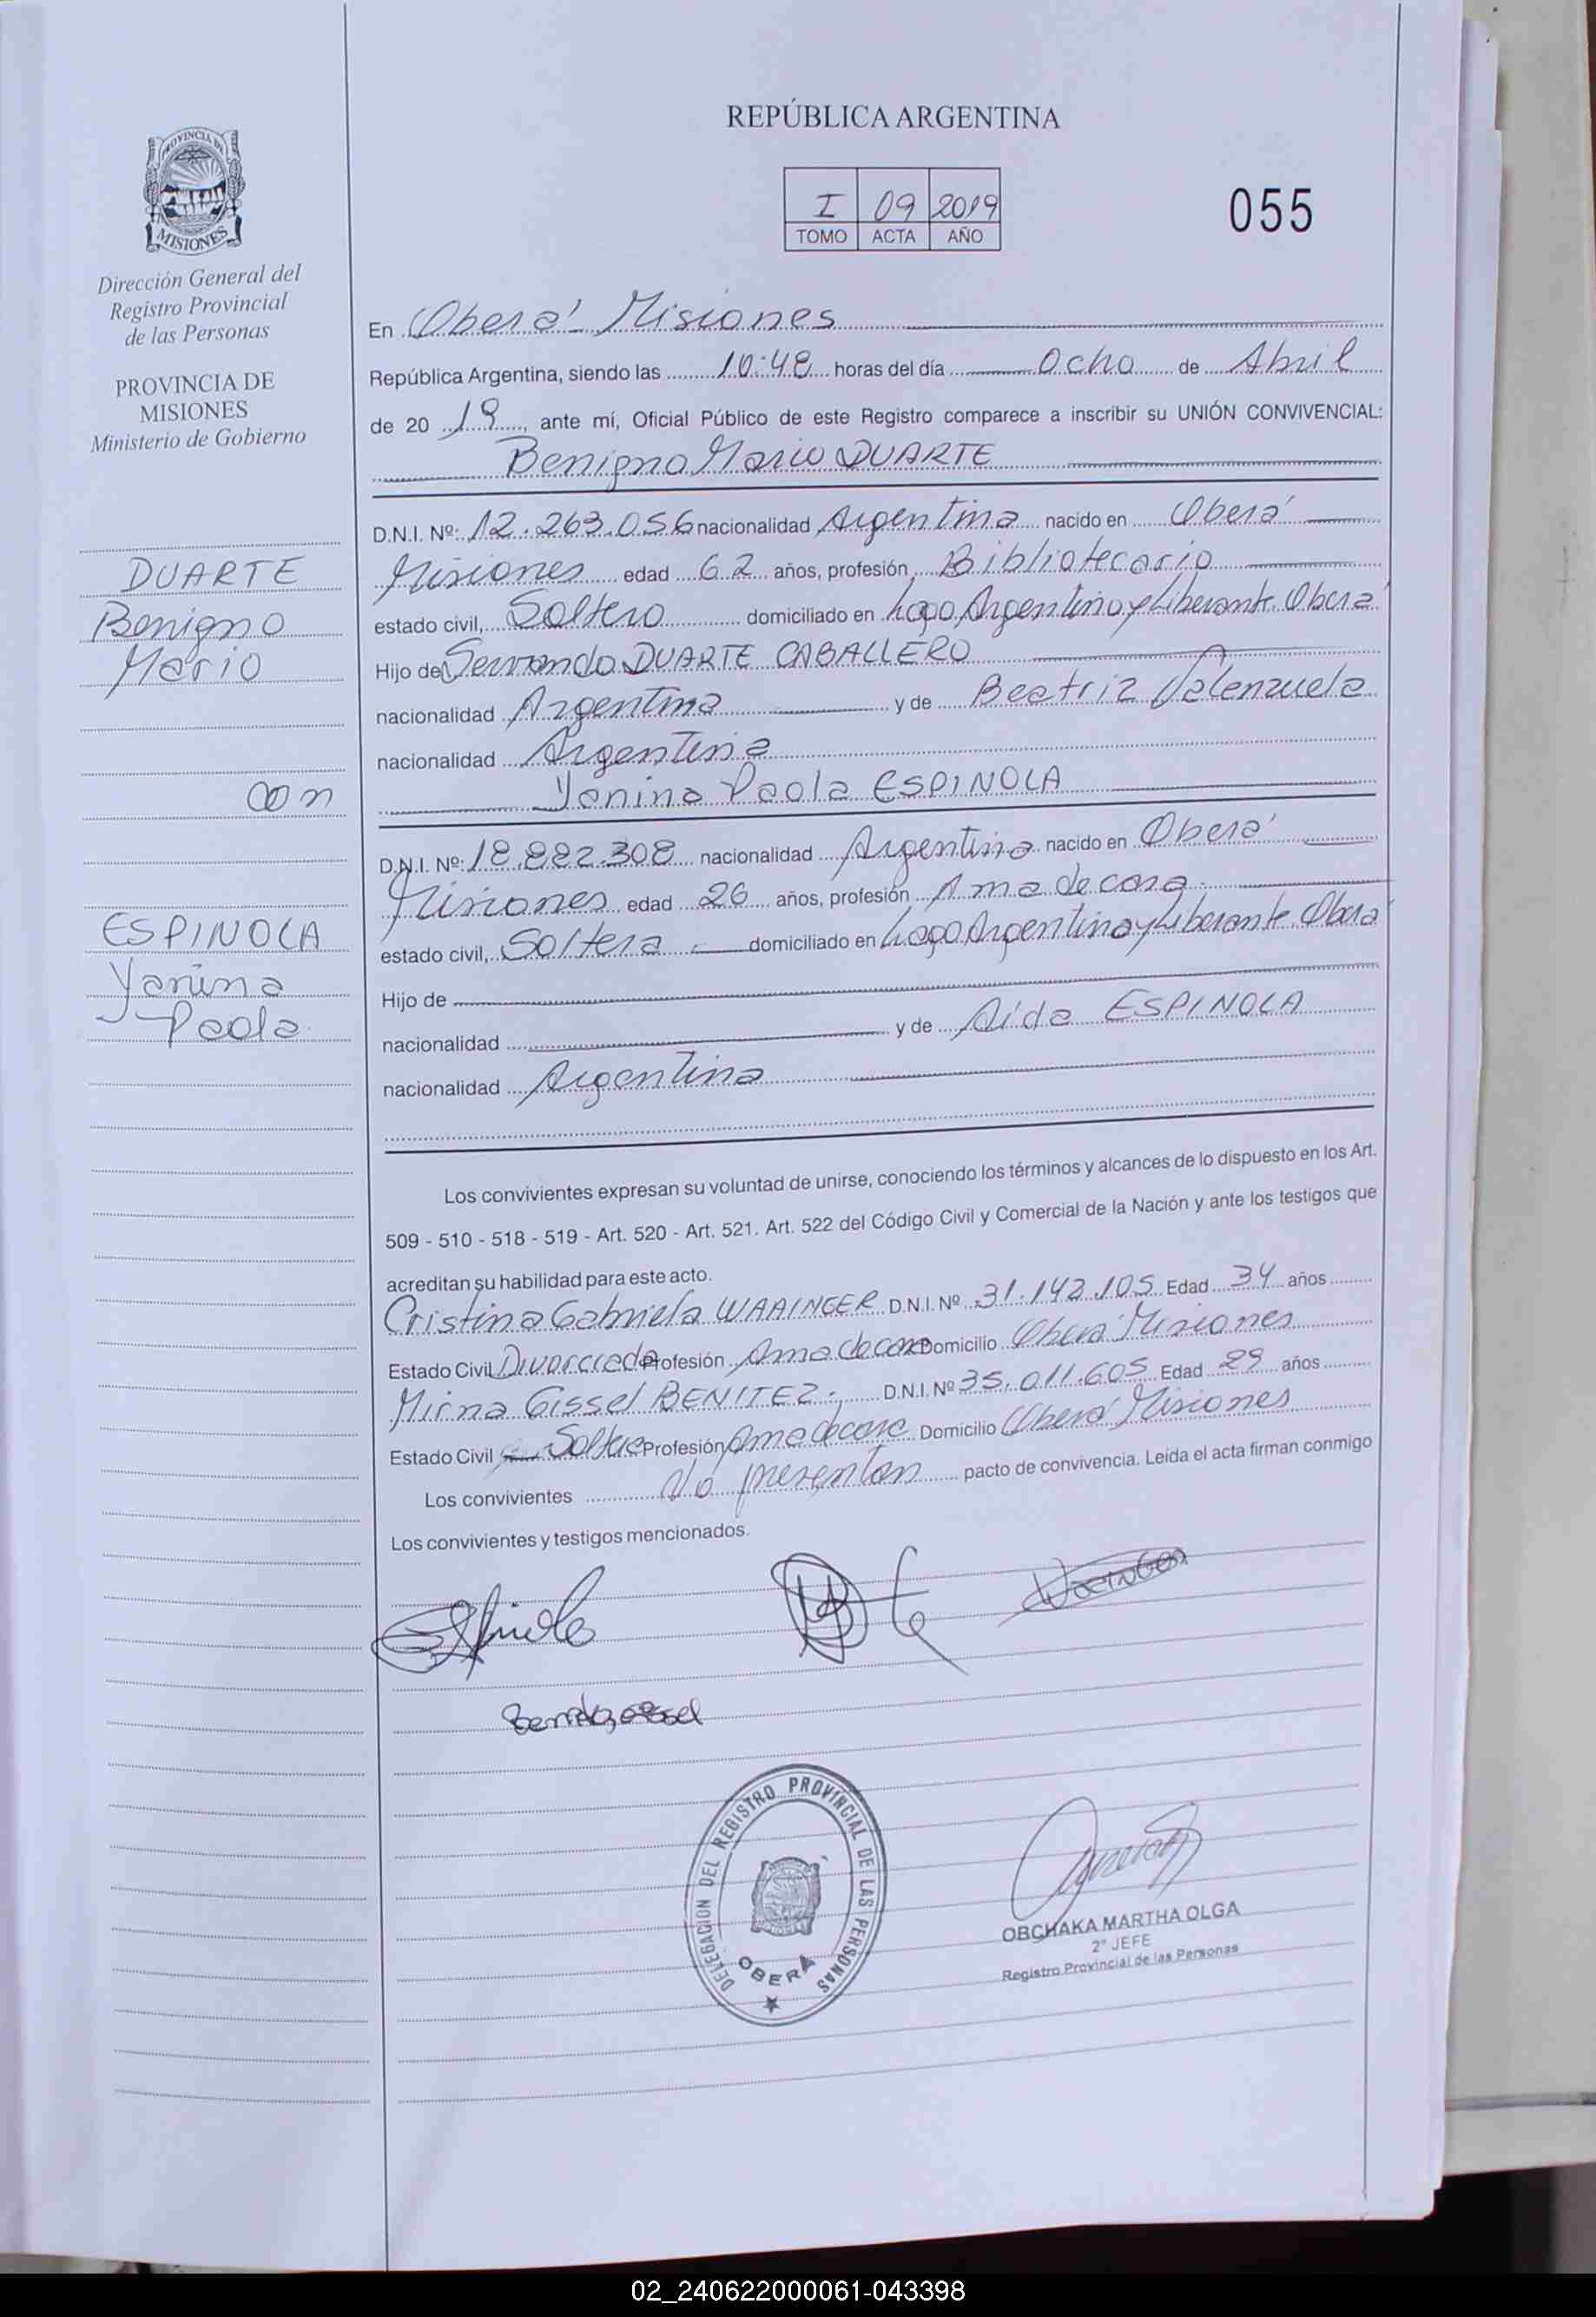 REPÚBLICA ARGENTINA
I 09 2019
TOMO ACTA AÑO
055
PROVINCIA DE
MISIONES
Dirección General del
Registro Provincial
de las Personas
PROVINCIA DE
MISIONES
Ministerio de Gobierno
DUARTE
Benigno
Mario
con
ESPINOLA
Yanina
Paola
En Oberá Misiones
República Argentina, siendo las 10:48 horas del día Ocho de Abril
de 20 19, ante mí, Oficial Público de este Registro comparece a inscribir su UNIÓN CONVIVENCIAL:
Benigno Mario DUARTE
D.N.I. Nº: 12.263.056 nacionalidad Argentina nacido en Oberá
Misiones edad 62 años, profesión Bibliotecario
estado civil, Soltero domiciliado en Lago Argentino y Liberante. Oberá
Hijo de Servando DUARTE CABALLERO
nacionalidad Argentina y de Beatriz Valenzuela
nacionalidad Argentina
Yanina Paola ESPINOLA
D.N.I. Nº: 18.882.308 nacionalidad Argentina nacido en Oberá
Misiones edad 26 años, profesión Ama de casa.
estado civil, Soltera domiciliado en Lago Argentino y Liberante. Oberá
Hijo de
nacionalidad y de Aida ESPINOLA
nacionalidad Argentina
Los convivientes expresan su voluntad de unirse, conociendo los términos y alcances de lo dispuesto en los Art.
509 - 510 - 518 - 519 - Art. 520 - Art. 521. Art. 522 del Código Civil y Comercial de la Nación y ante los testigos que
acreditan su habilidad para este acto.
Cristina Gabriela WAAINGER D.N.I. Nº 31.142.105 Edad 34 años
Estado Civil Divorciada Profesión Ama de casa Domicilio Oberá Misiones
Mirna Gissel BENITEZ. D.N.I. Nº 35.011.605 Edad 29 años
Estado Civil Soltera Profesión Ama de casa Domicilio Oberá Misiones
Los convivientes No presentan pacto de convivencia. Leída el acta firman conmigo
Los convivientes y testigos mencionados.
DELEGACION DEL REGISTRO PROVINCIAL DE LAS PERSONAS
OBERÁ
OBCHAKA MARTHA OLGA
2º JEFE
Registro Provincial de las Personas
02_240622000061-043398